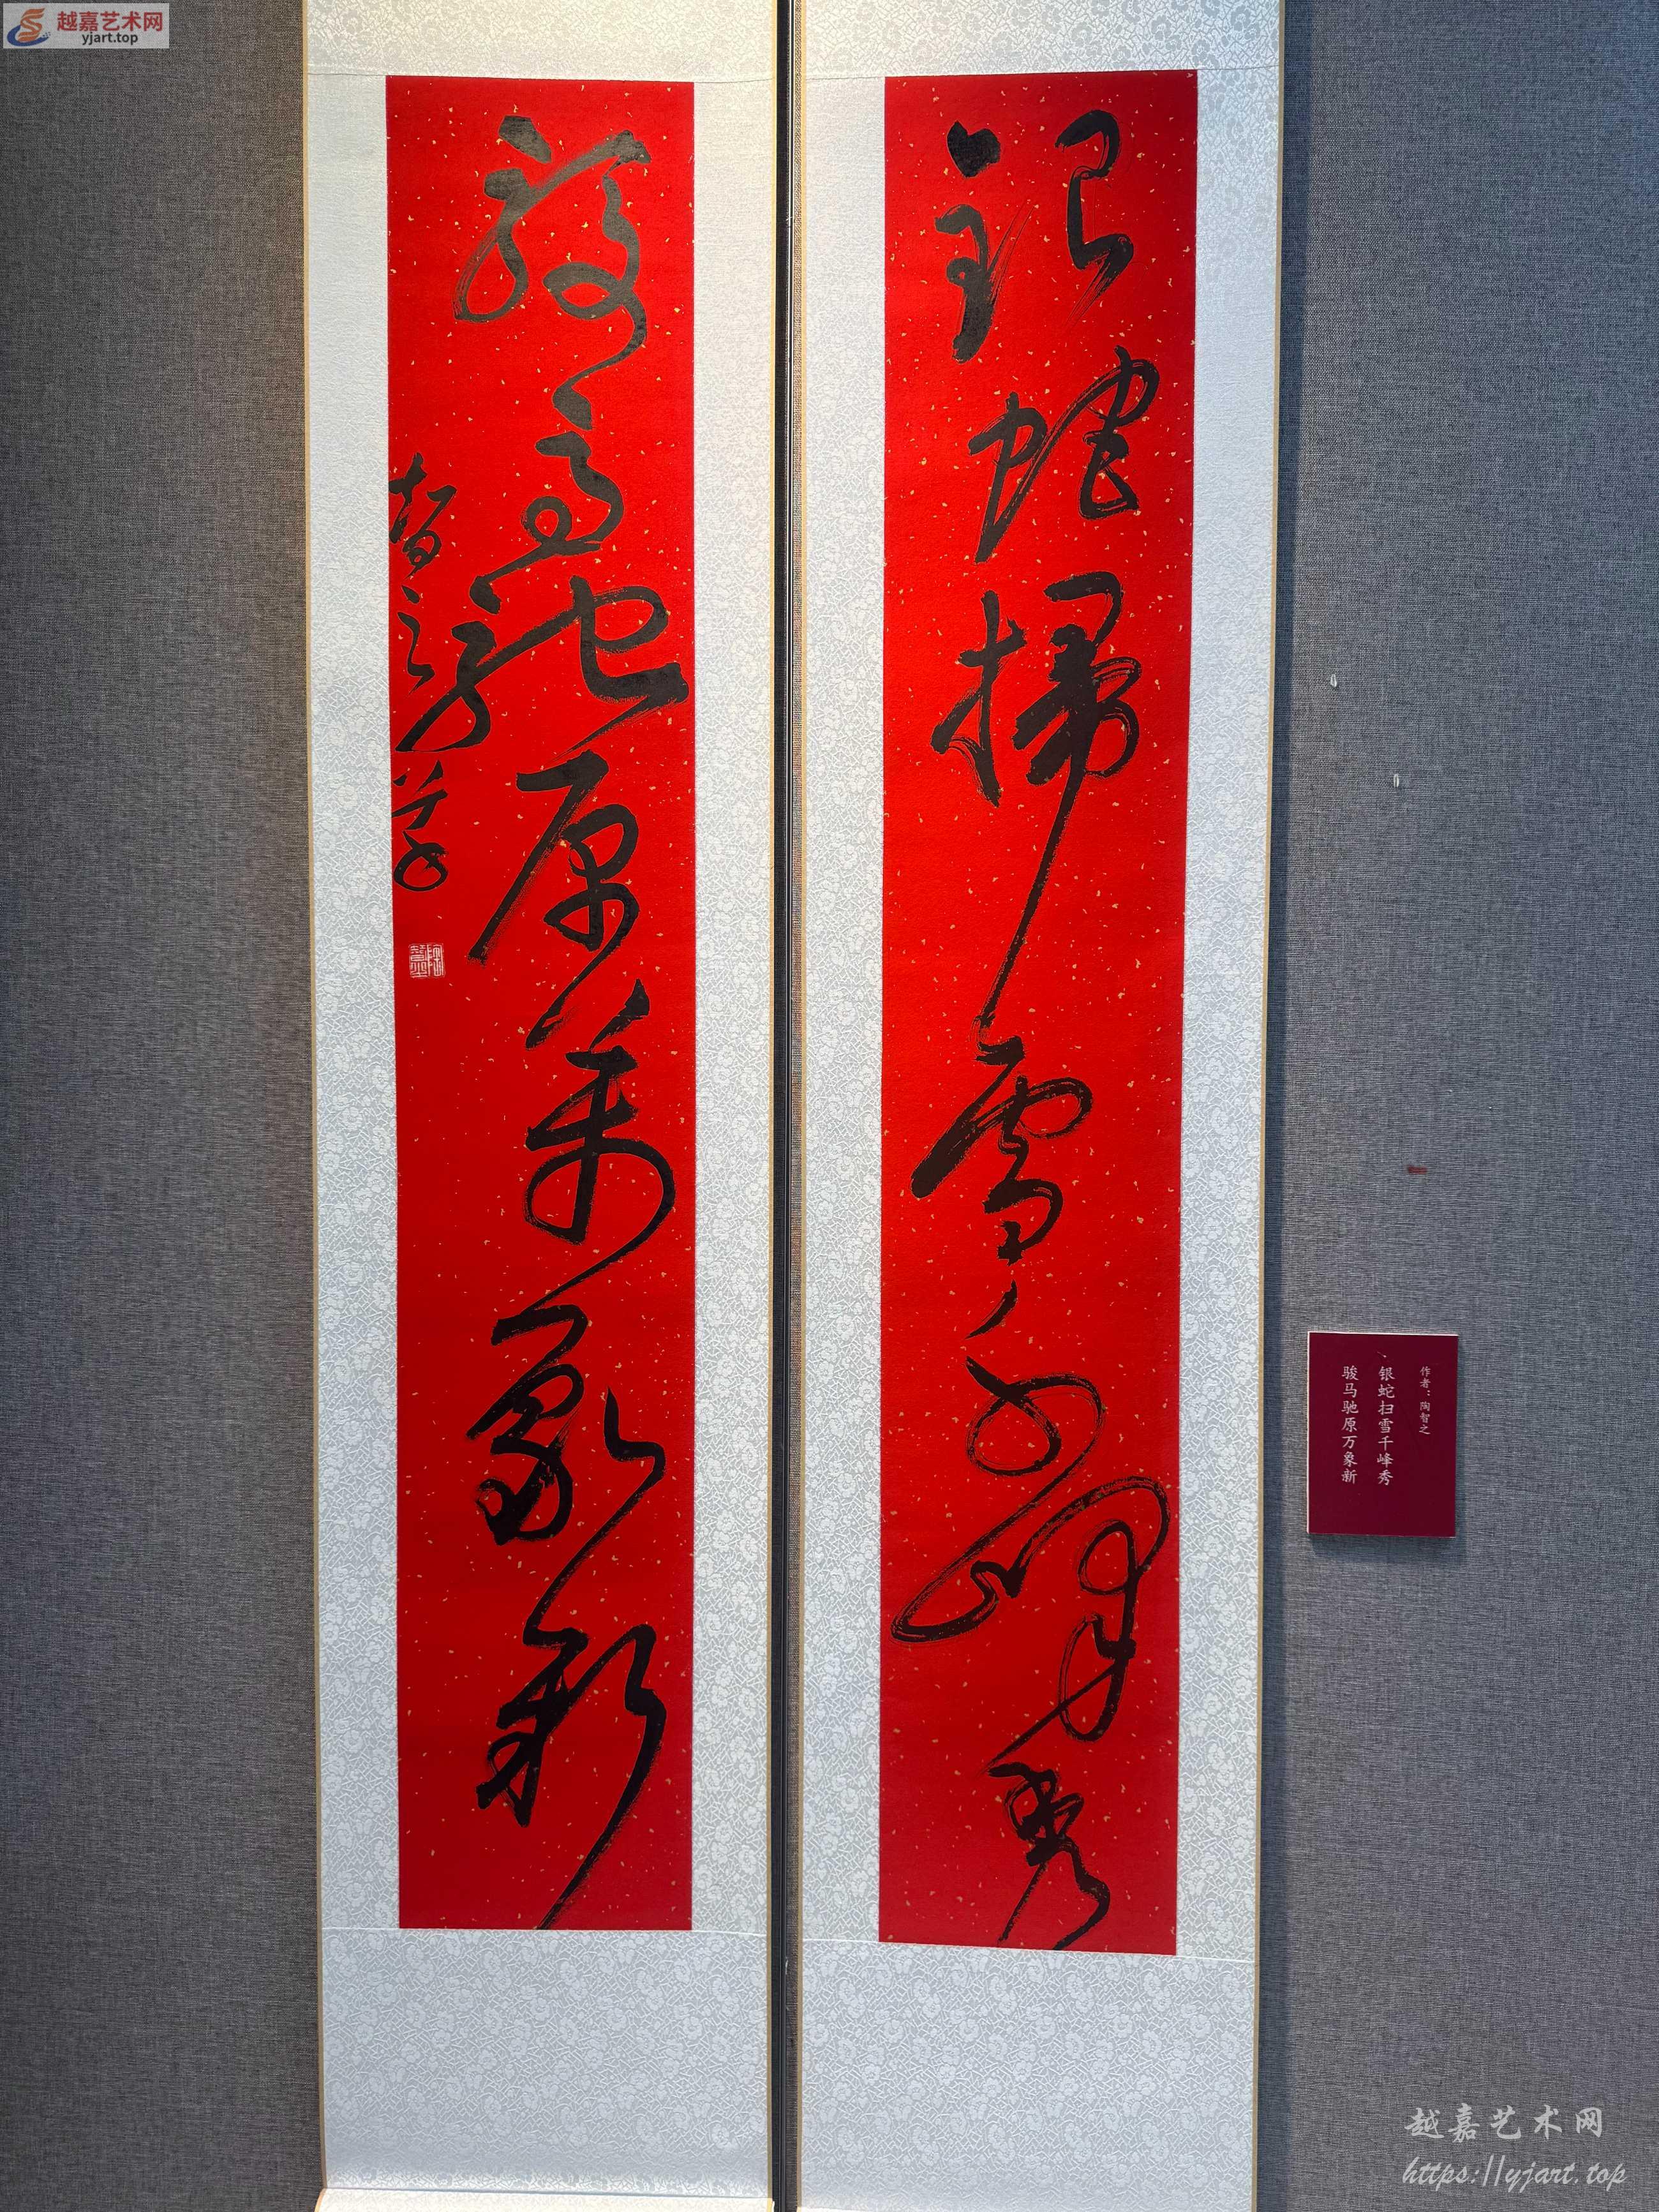 越嘉艺术网
yjart.top
銀蛇掃雪千峰秀
駿馬馳原萬象新
智之草
作者：陶智之
银蛇扫雪千峰秀
骏马驰原万象新
越嘉艺术网
https://yjart.top